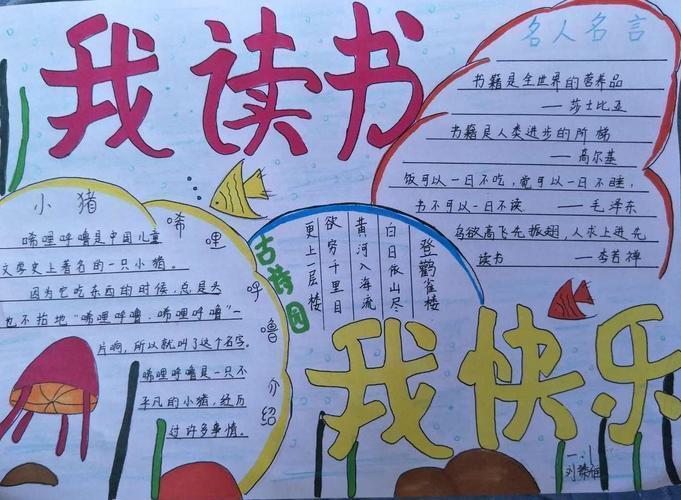 我读书
名人名言
书籍是全世界的营养品
——莎士比亚
书籍是人类进步的阶梯
——高尔基
饭可以一日不吃,觉可以一日不睡,
书不可以一日不读 ——毛泽东
鸟欲高飞先振翅,人求上进先
读书 ——李苦禅
小猪唏哩呼噜介绍
唏哩呼噜是中国儿童
文学史上著名的一只小猪。
因为它吃东西的时候,总是头
也不抬地“唏哩呼噜、唏哩呼噜”一
片响,所以就叫了这个名字。
唏哩呼噜是一只不
平凡的小猪,经历
过许多事情。
古诗园
登鹳雀楼
白日依山尽
黄河入海流
欲穷千里目
更上一层楼
我快乐